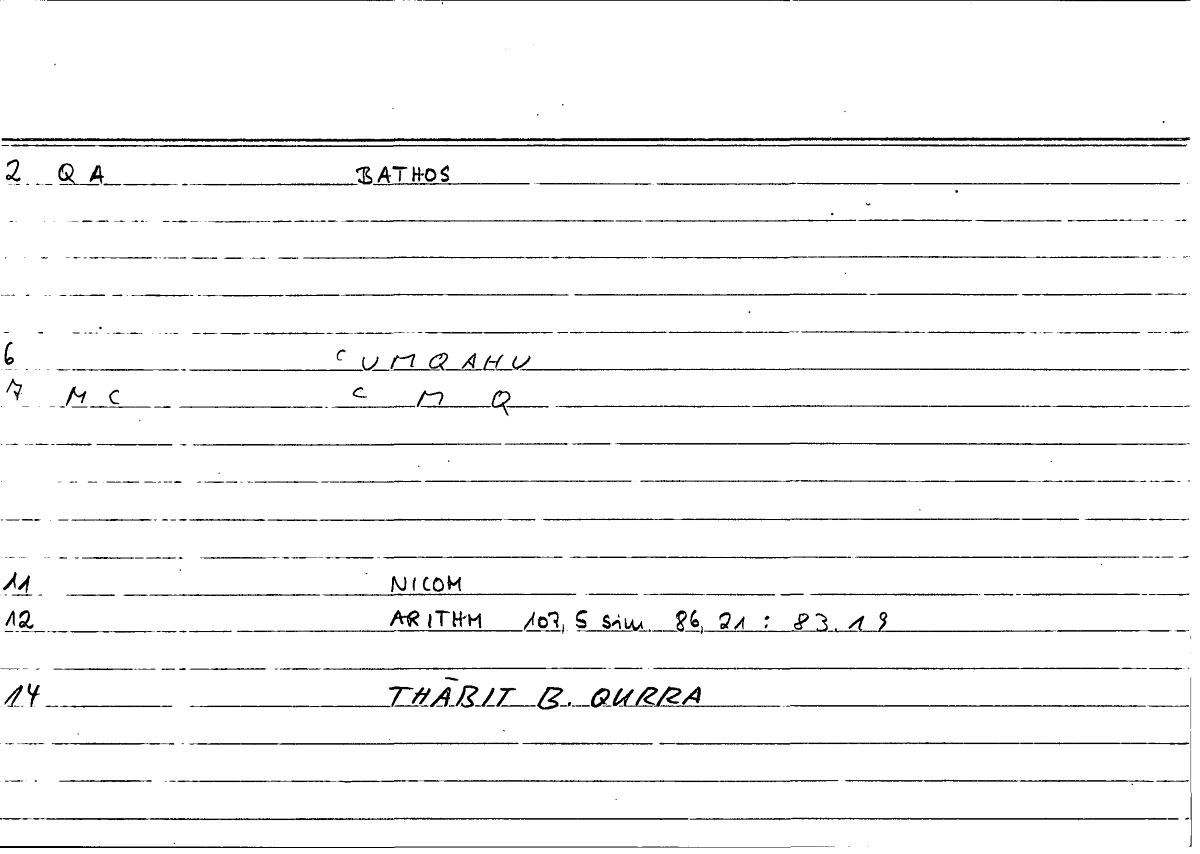 2 Q A BATHOS
6 ᶜUMQAHU
7 M C ᶜ M Q
11 NICOM
12 ARITHM 107, 5 sim. 86, 21 : 83.19
14 THĀBIT B. QURRA